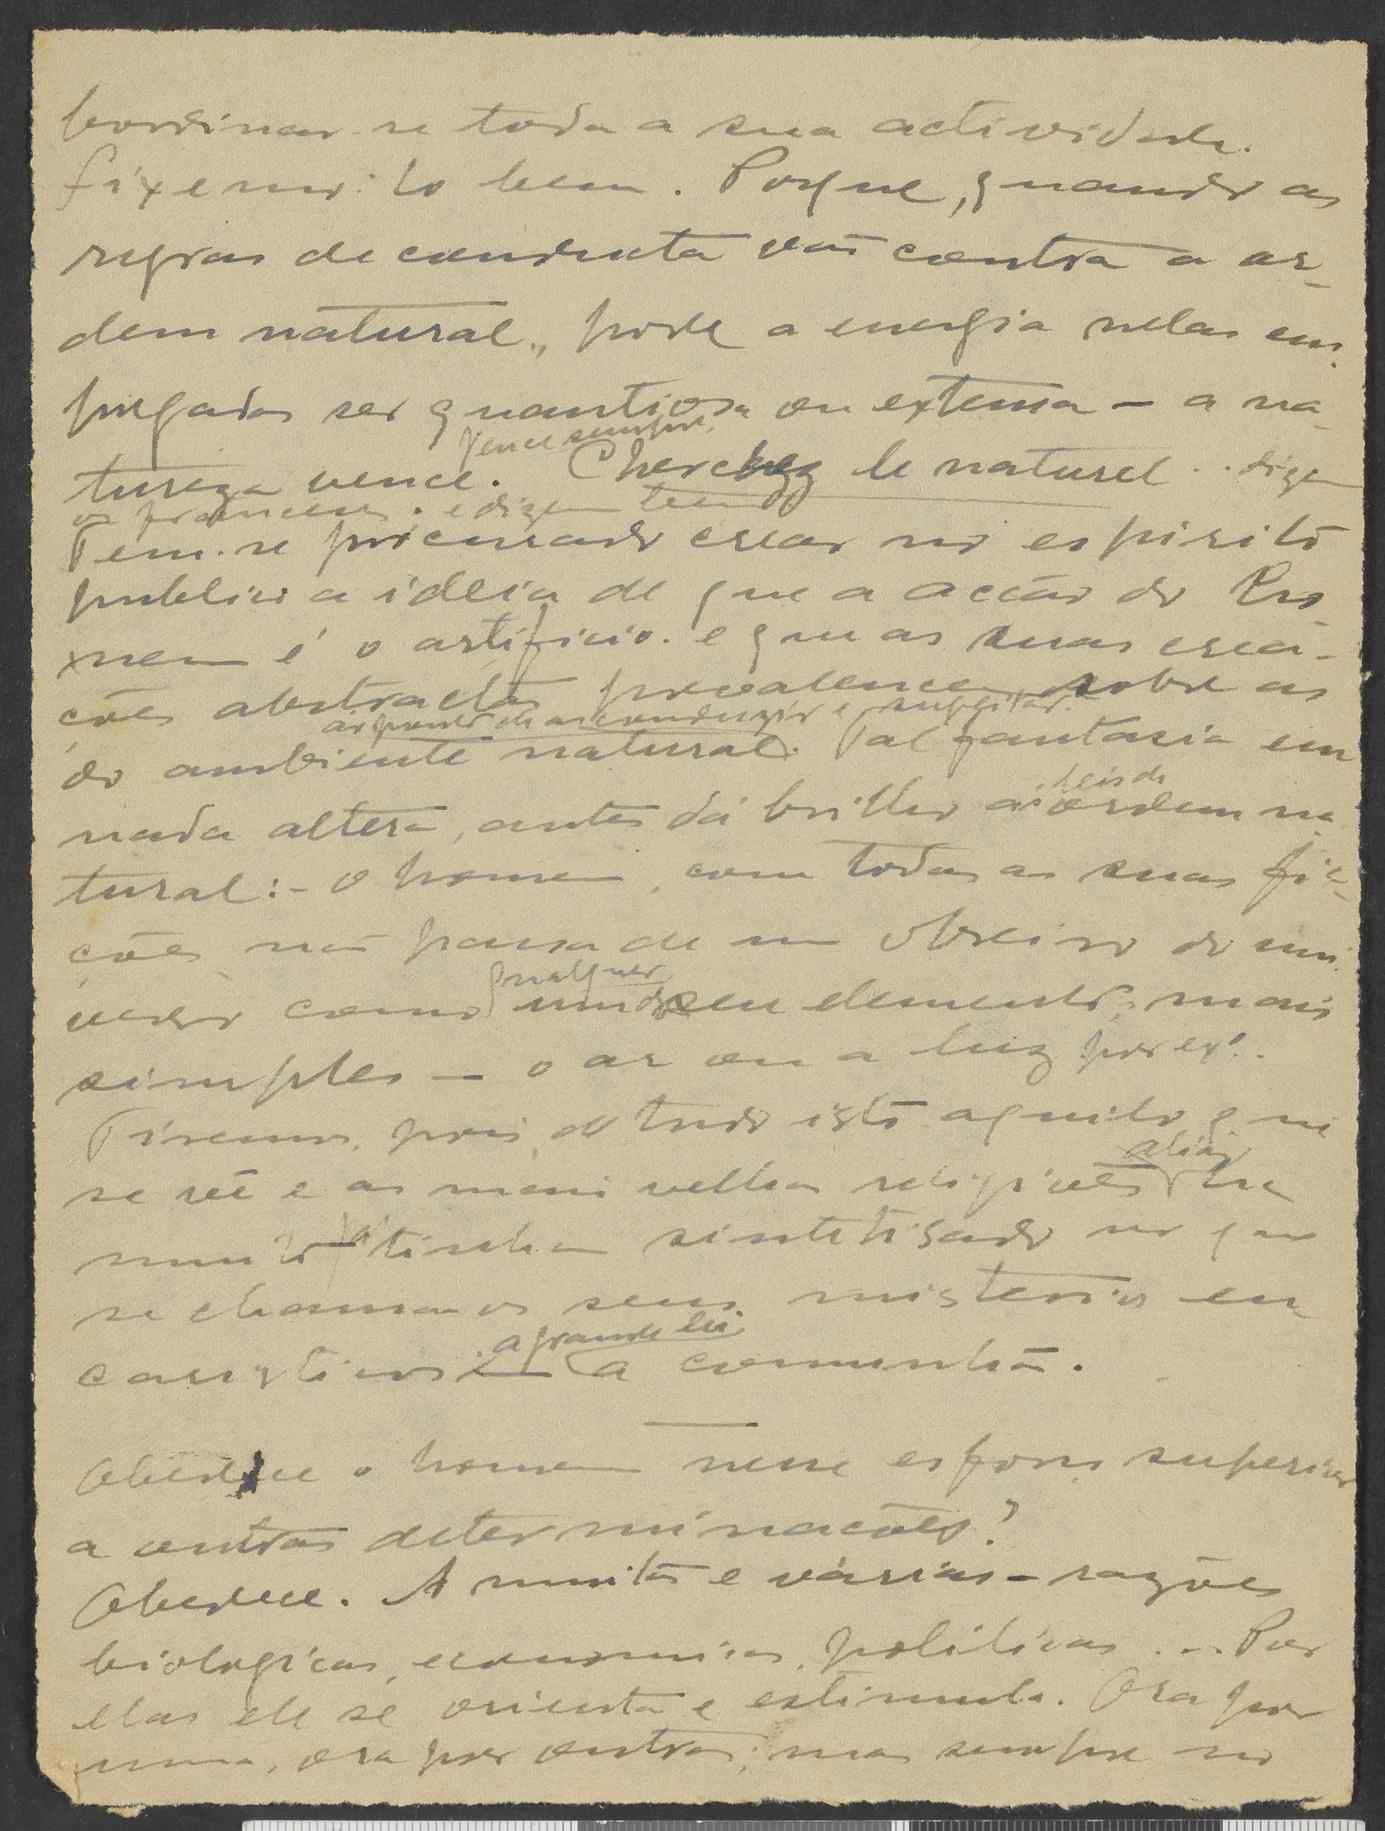 bordinar-se toda a sua actividade.
Fixemo-lo bem. Porque, quando as
regras de conducta vão contra a or-
dem natural, pode a energia nelas em-
pregada ser quantiosa ou extensa - a na-
vence sempre.
tureza vence. Cherchez le naturel.. dizem
os franceses. e dizem bem
Tem-se procurado crear no espirito
publico a ideia de que a acção do Ho
mem é o artificio. e que as suas crea-
ções abstractas prevalecem sobre as
ao ponto de as conduzir e sujeitar.
do ambiente natural. Tal fantasia em
leis da
nada altera, antes dá brilho á ordem na
tural:- o homem, com todas as suas fic-
ções não passa de um obreiro do uni-
qualquer
verso como um do seu elemento mais
simples - o ar ou a luz por exº..
Tiremos, pois, de tudo isto aquilo que
aliás
se vê e as mais velhas religiões ha
muito já tinham sintetisado no que
se chama os seus misterios eu
a grande lei
caristicos - a comunhão.
Obedece o homem nesse esforço superior
a outras determinações?
Obedece. A muitas e várias - razões
biologicas, economicas, politicas... Por
elas ele se orienta e estimula. Ora por
uma, ora por outra; mas sempre no